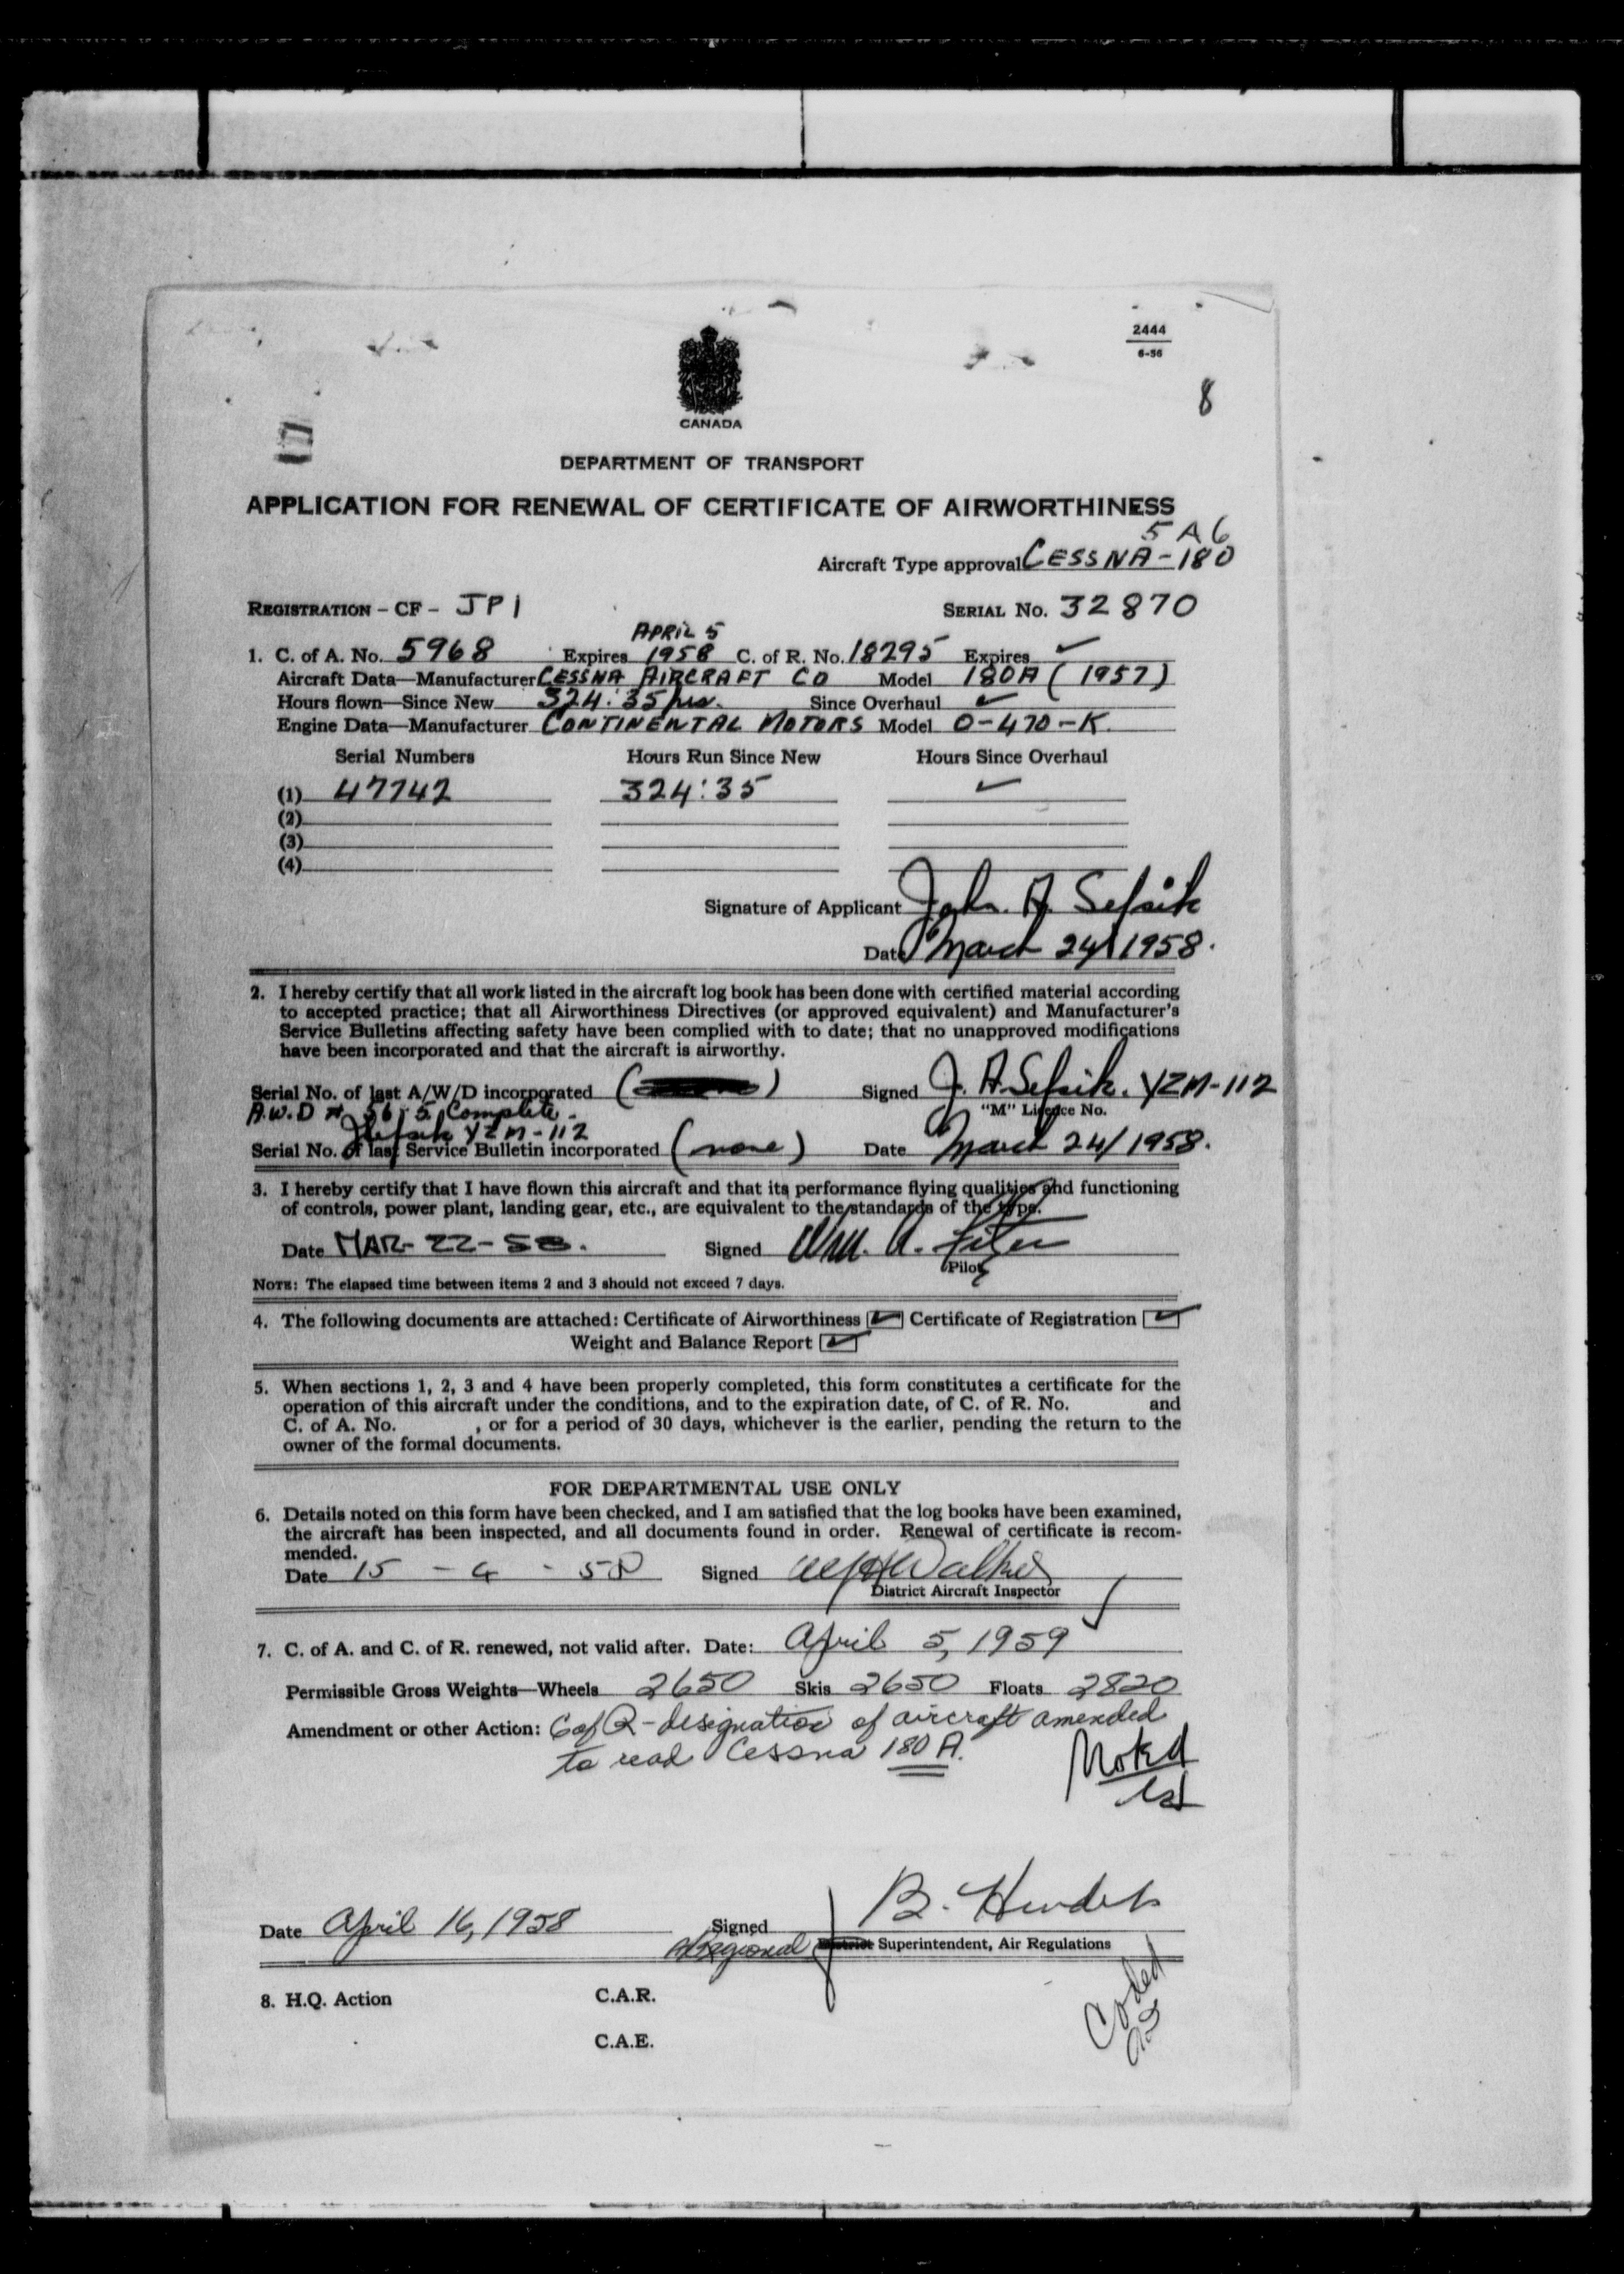 2444
6-56
8
CANADA
DEPARTMENT OF TRANSPORT
APPLICATION FOR RENEWAL OF CERTIFICATE OF AIRWORTHINESS
5 A 6
Aircraft Type approval CESSNA-180
REGISTRATION - CF - JPI SERIAL No. 32870
APRIL 5
1. C. of A. No. 5968 Expires 1958 C. of R. No. 18295 Expires ✓
Aircraft Data—Manufacturer CESSNA AIRCRAFT CO Model 180A (1957)
Hours flown—Since New 324:35 hrs. Since Overhaul ✓
Engine Data—Manufacturer CONTINENTAL MOTORS Model O-470-K
Serial Numbers Hours Run Since New Hours Since Overhaul
(1) 47742 324:35 ✓
(2)
(3)
(4)
Signature of Applicant John A. Sefsik
Date March 24/1958.
2. I hereby certify that all work listed in the aircraft log book has been done with certified material according
to accepted practice; that all Airworthiness Directives (or approved equivalent) and Manufacturer's
Service Bulletins affecting safety have been complied with to date; that no unapproved modifications
have been incorporated and that the aircraft is airworthy.
Serial No. of last A/W/D incorporated ( ) Signed J. A. Sefsik. YZM-112
"M" Licence No.
A.W.D # 56-5, Complete.
YZM-112
Serial No. of last Service Bulletin incorporated (none) Date March 24/1958.
3. I hereby certify that I have flown this aircraft and that its performance flying qualities and functioning
of controls, power plant, landing gear, etc., are equivalent to the standards of the type.
Date MAR-22-58. Signed Wm. A.
Pilot
NOTE: The elapsed time between items 2 and 3 should not exceed 7 days.
4. The following documents are attached: Certificate of Airworthiness ✓ Certificate of Registration ✓
Weight and Balance Report ✓
5. When sections 1, 2, 3 and 4 have been properly completed, this form constitutes a certificate for the
operation of this aircraft under the conditions, and to the expiration date, of C. of R. No. and
C. of A. No. , or for a period of 30 days, whichever is the earlier, pending the return to the
owner of the formal documents.
FOR DEPARTMENTAL USE ONLY
6. Details noted on this form have been checked, and I am satisfied that the log books have been examined,
the aircraft has been inspected, and all documents found in order. Renewal of certificate is recom-
mended.
Date 15 - 4 - 58 Signed Walker
District Aircraft Inspector
7. C. of A. and C. of R. renewed, not valid after. Date: April 5, 1959
Permissible Gross Weights—Wheels 2650 Skis 2650 Floats 2820
Amendment or other Action: C of R - designation of aircraft amended
to read Cessna 180 A.
Noted
Date April 16, 1958 Signed B.
Regional District Superintendent, Air Regulations
8. H.Q. Action C.A.R.
Coded
C.A.E.